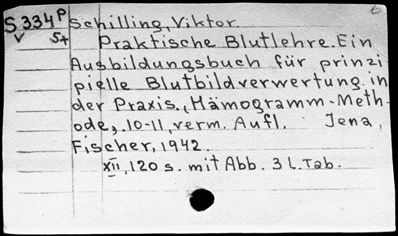 S 334 P Schilling, Viktor.
V 5+ Praktische Blutlehre. Ein
Ausbildungsbuch für prinzi
pielle Blutbildverwertung in
der Praxis., Hämogramm-Meth-
ode, .10-11, verm. Aufl. Jena,
Fischer, 1942.
XII, 120 s. mit Abb. 3 l. Tab.